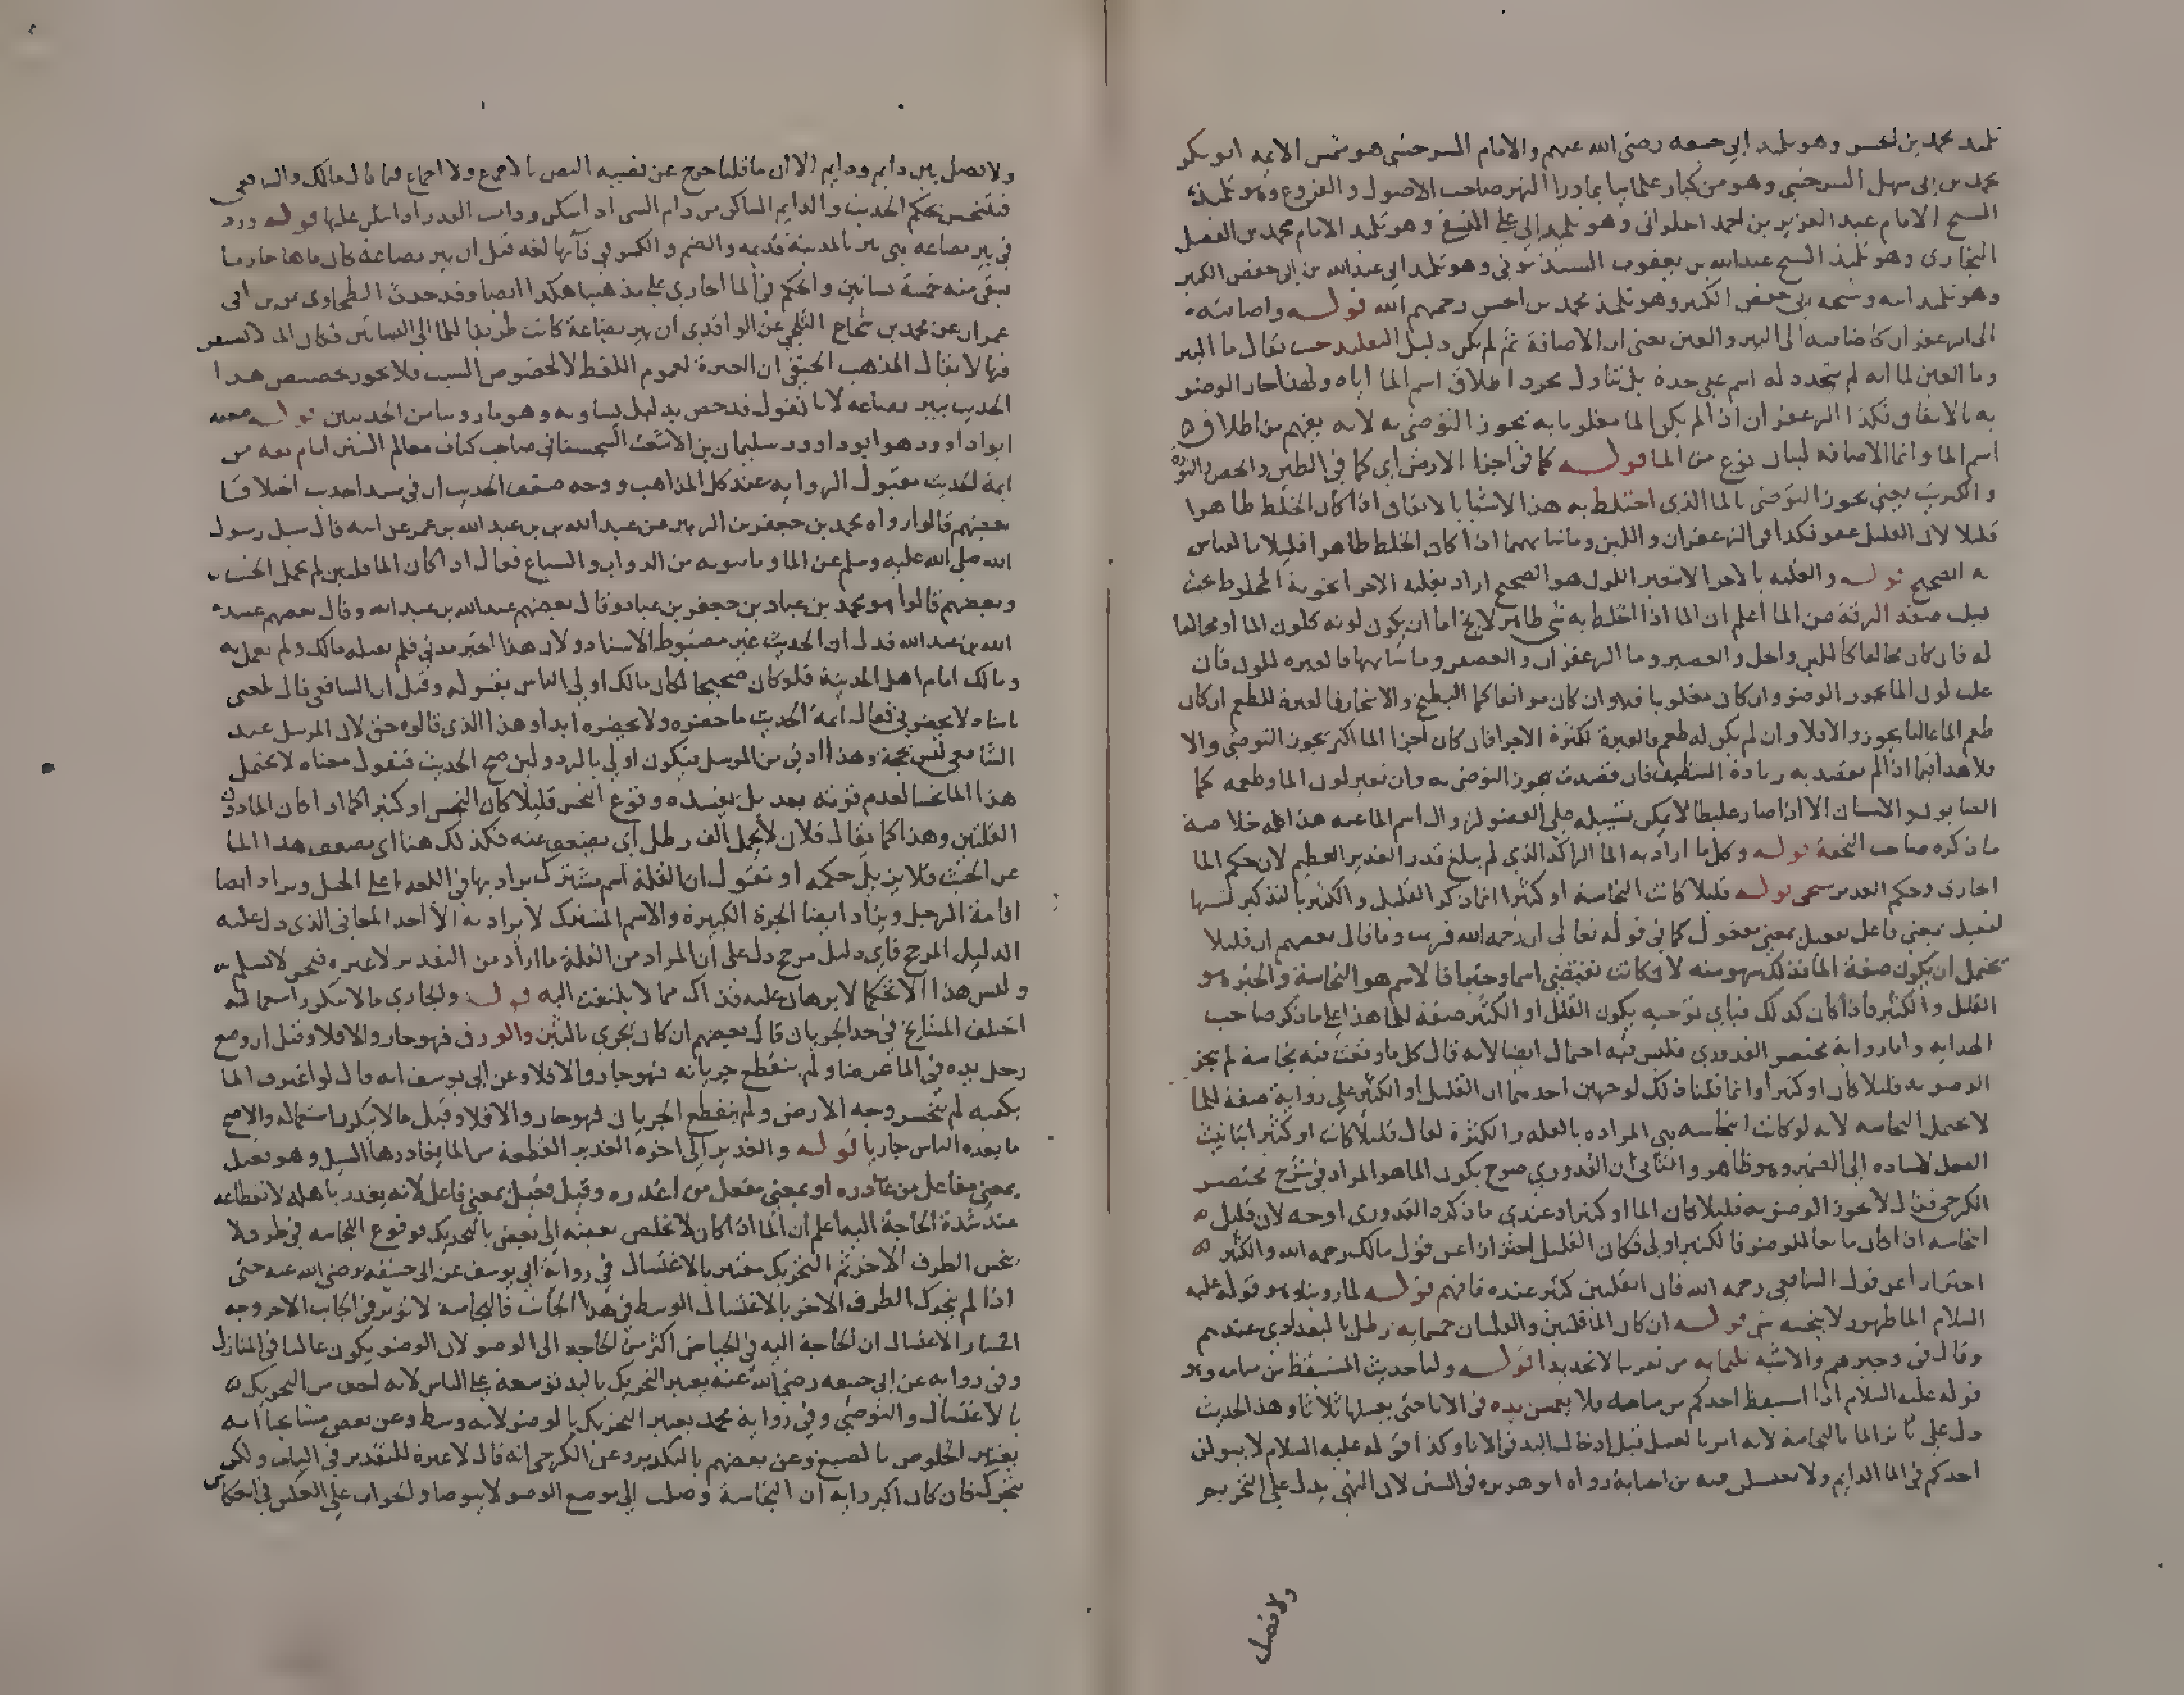 تلميذ محمد بن الحسن وهو تلميذ ابي حنيفه رضي الله عنهم والامام السرخسي هو شمس الايمه ابو بكر
محمد بن ابي سهل السرخسي وهو من كبار علماينا بما ورا النهر صاحب الاصول والفروع وهو تلميذ
الشيخ الامام عبد العزيز بن احمد الحلواني وهو تلميذ ابي علي النسفي وهو تلميذ الامام محمد بن الفضل
البخاري وهو تلميذ الشيخ عبد الله بن يعقوب السبذموني وهو تلميذ ابي عبد الله بن ابي حفص الكبير
وهو تلميذ ابيه وشيخه ابي حفص الكبير وهو تلميذ محمد بن الحسن رحمهم الله قوله واضافته
الى الزعفران كاضافته الى البير والعين يعني ان الاضافة ثم لم يكن دليل التقليد حيث يقال ما البير
وما العين لما انه لم يتجدد له اسم على حدة بل يتناول مجرد اطلاق اسم الما اياه ولهذا جاز الوضو
به بالاتفاق فكذا الزعفران اذا لم يكن الما مغلوبا به يجوز التوضي به لانه يفهم من اطلاق
اسم الما وانما الاضافه لبيان نوع من الما قوله كما في اجزا الارض اي كما في الطين والجص والنوره
والكبريت يعني يجوز التوضي بالما الذي اختلط به هذا الاشيا بالاتفاق اذا كان الخلط طاهرا
قليلا لان القليل عفو فكذا في الزعفران واللبن وما شابههما اذا كان الخلط طاهرا قليلا بالقياس
به الصحيح قوله والغلبه بالاجزا لا بتغير اللون هو الصحيح اراد بغلبه الاجزا نخوبة المخلوط حيث
صفة الرقة من الما اعلم ان الما اذا اختلط به شي طاهر لا يخ اما ان يكون لونه كلون الما او مخالفا
له فان كان مخالفا كاللبن والخل والعصير وما الزعفران والعصفر وما شابهها فالعبره للون فان
غلب لون الما يجوز الوضو وان كان مغلوبا فلا وان كان موافقا كما البطيخ والاشجار فالعبرة للطعم ان كان
طعم الما غالبا يجوز والا فلا وان لم يكن له طعم فالعبرة لكثرة الاجزا فان كان اجزا الما اكثر يجوز التوضي والا
فلا هذا فيما اذا لم يقصد به زيادة التنظيف فان قصدت يجوز التوضي به وان تغير لون الما وطعمه كما
الصابون والاشنان الا اذا صار غليظا لا يمكن تسييله على العضو لزوال اسم الما عنه هذا كله خلاصة
ما ذكره صاحب التحفة قوله وكل ما اراد به الما الراكد الذي لم يبلغ قدر الغدير العظيم لان حكم الما
الجاري وحكم الغدير سيجي قوله قليلا كانت النجاسة او كثيرا انما ذكر القليل والكثير بالتذكير لشبهها
لفعيل بمعني فاعل بفعيل بمعني مفعول كما في قوله تعالى ان رحمة الله قريب وما قال بعضهم ان قليلا
يحتمل ان يكون صفة الما فذلك سهو منه لان كانت تقتضي اسما وخبرا فالاسم هو النجاسة والخبر هو
القليل والكثير فاذا كان كذلك فباي توجيه يكون القليل او الكثير صفة للما هذا على ما ذكر صاحب
الهدايه واما رواية مختصر القدوري فليس فيه احتمال ايضا لانه قال كل ما وقعت فيه نجاسة لم يجز
الوضو به قليلا كان او كثيرا وانما قلنا ذلك لوجهين احدهما ان القليل او الكثير على رواية صفة للما
لا يحتمل النجاسه لانه لو كانت النجاسه هي المراده بالقله والكثرة لقال قليلا كانت او كثيرا بتانيث
الفعل لاسناده الى الضمير وهو ظاهر والثاني ان القدوري صرح بكون الما هو المراد في شرح مختصر
الكرخي فقال لا يجوز الوضو به قليلا كان الما او كثيرا وعندي ما ذكره القدوري اوجه لان قليل
النجاسه اذا كان مانعا للوضو فالكثير اولى فكان القليل احترازا عن قول مالك رحمه الله والكثير
احترازا عن قول الشافعي رحمه الله فان القلتين كثير عنده فافهم قوله لما روينا وهو قوله عليه
السلام الما طهور لا ينجسه شي قوله ان كان الما قلتين والقلتان خمسمايه رطل بالبغدادي عندهم
وقال في وجيزهم والاشبه ثلثمايه من تقريبا لا تحديدا قوله ولنا حديث المستيقظ من منامه وهو
قوله عليه السلام اذا استيقظ احدكم من منامه فلا يغمس يده في الانا حتى يغسلها ثلاثا وهذا الحديث
دل على تاثر الما بالنجاسة لانه امر بالغسل قبل ادخال اليد في الانا وكذا قوله عليه السلام لا يبولن
احدكم في الما الدايم ولا يغتسلن فيه من الجنابة رواه ابو هريره في السنن لان النهي يدل على التحريم
ولا فصل
ولا فصل بين دايم ودايم الا ان ما قلنا خرج عن قضيه النص بالاجماع ولا اجماع فيما قال مالك والشافعي
فيتنجس بحكم الحديث والدايم الساكن من دام الشي اذا سكن ودامت القدر اذا سكن غليانها قوله ورد
في بير بضاعه هي بير بالمدينة قديمه والضم والكسر في بآيها لغه قيل ان بير بضاعة كان ماها جاريا
يسقى منه خمسة بساتين والحكم في الما الجاري على مذهبنا هكذا ايضا وقد حدث الطحاوي عن ابن ابي
عمران عن محمد بن شجاع الثلجي عن الواقدي ان بير بضاعة كانت طريقا للما الى البساتين فكان الما لا يستقر
فيها لا يقال المذهب الحنفي ان العبرة لعموم اللفظ لا لخصوص السبب فلا يجوز تخصيص هذا
الحديث ببير بضاعه لانا نقول قد خص بدليل يساويه وهو ما روينا من الحديثين قوله ضعفه
ابو داوود هو ابو داوود سليمان بن الاشعث السجستاني صاحب كتاب معالم السنن امام ثقه من
ايمة الحديث مقبول الروايه عند كل المذاهب ووجه ضعف الحديث ان في سند الحديث اختلافا
بعضهم قالوا رواه محمد بن جعفر بن الزبير عن عبد الله بن عبد الله بن عمر عن ابيه قال سيل رسول
الله صلى الله عليه وسلم عن الما وما ينوبه من الدواب والسباع فقال اذا كان الما قلتين لم يحمل الخبث
وبعضهم قالوا هو محمد بن عباد بن جعفر بن عباد وقال بعضهم عبد الله بن عبد الله وقال بعضهم عبيد
الله بن عبد الله فدل ان الحديث غير مضبوط الاسناد ولان هذا الخبر مدني فلم يقبله مالك ولم يعمل به
ومالك امام اهل المدينة فلو كان صحيحا لكان مالك اولى الناس بقبوله وقيل ان الشافعي قال بلغني
باسناد لا يحضرني فقال ايمة الحديث ما حضره ولا يحضره ابدا وهذا الذي قالوه حق لان المرسل عند
الشافعي ليس بحجة وهذا ادنى من المرسل فيكون اولى بالرد ولين صح الحديث فنقول معناه لا يحتمل
هذا الما نجسا لعدم قوته بعد بل يفسده وقوع النجس قليلا كان النجس او كثيرا كما اذا كان الما دون
القلتين وهذا كما يقال فلان لا يحمل الف رطل اي يضعف عنه فكذلك هنا اي يضعف هذا الما
عن الخبث فلا يزيل حكمه او نقول ان القلة اسم مشترك يراد بها في اللغه اعلى الجبل ويراد ايضا
اقامة الرجل ويراد ايضا الجرة الكبيرة والاسم المشترك لا يراد به الا احد المعاني الذي دل عليه
الدليل المرجح فاي دليل مرجح دل على ان المراد من القلة ما اراد من التقدير لا غيره فنحن لا نسلم
وليس هذا الا تحكما لا برهان عليه فذاك مما لا يلتفت اليه قوله والجاري ما لا يتكرر استعماله
اختلف المشايخ في حد الجريان قال بعضهم ان كان يجري بالتبن والورق فهو جار والا فلا وقيل ان وضع
رجل يده في الما عرضا ولم ينقطع جريانه فهو جار والا فلا وعن ابي يوسف انه قال لو اغترف الما
بكفيه لم ينحسر وجه الارض ولم ينقطع الجريان فهو جار والا فلا وقيل ما لا يتكرر استعماله والاصح
ما يعده الناس جاريا قوله والغدير الى اخره الغدير القطعة من الما يغادرها السيل وهو فعيل
بمعني مفاعل من غادره او بمعني مفعل من اغدره وقيل فعيل بمعني فاعل لانه يغدر باهله لانقطاعه
عند شدة الحاجة اليه اعلم ان الما اذا كان لا يخلص بعضه الى بعض بالتحريك فوقوع النجاسه في طرف لا
ينجس الطرف الاخر ثم التحريك معتبر بالاغتسال في رواية ابي يوسف عن ابي حنيفه رضي الله عنه حتى
اذا لم يتحرك الطرف الاخر بالاغتسال الوسط في هذا الجانب فالنجاسه لا توثر في الجانب الاخر وجه
اعتبار الاغتسال ان الحاجة اليه في الحياض اكثر من الحاجه الى الوضو لان الوضو يكون غالبا في المنازل
وفي روايه عن ابي حنيفه رضي الله عنه يعتبر التحريك باليد توسعة على الناس لانه اخف من التحريك
بالاغتسال والتوضي وفي رواية محمد يعتبر التحريك بالوضو لانه وسط وعن بعض مشايخنا انه
يعتبر الخلوص بالصبغ وعن بعضهم بالتكدير وعن الكرخي انه قال لا عبرة للتقدير في الباب ولكن
يتحرى فان كان اكبر رايه ان النجاسة وصلت الى موضع الوضو لا يتوضا والجواب على العكس في العكس